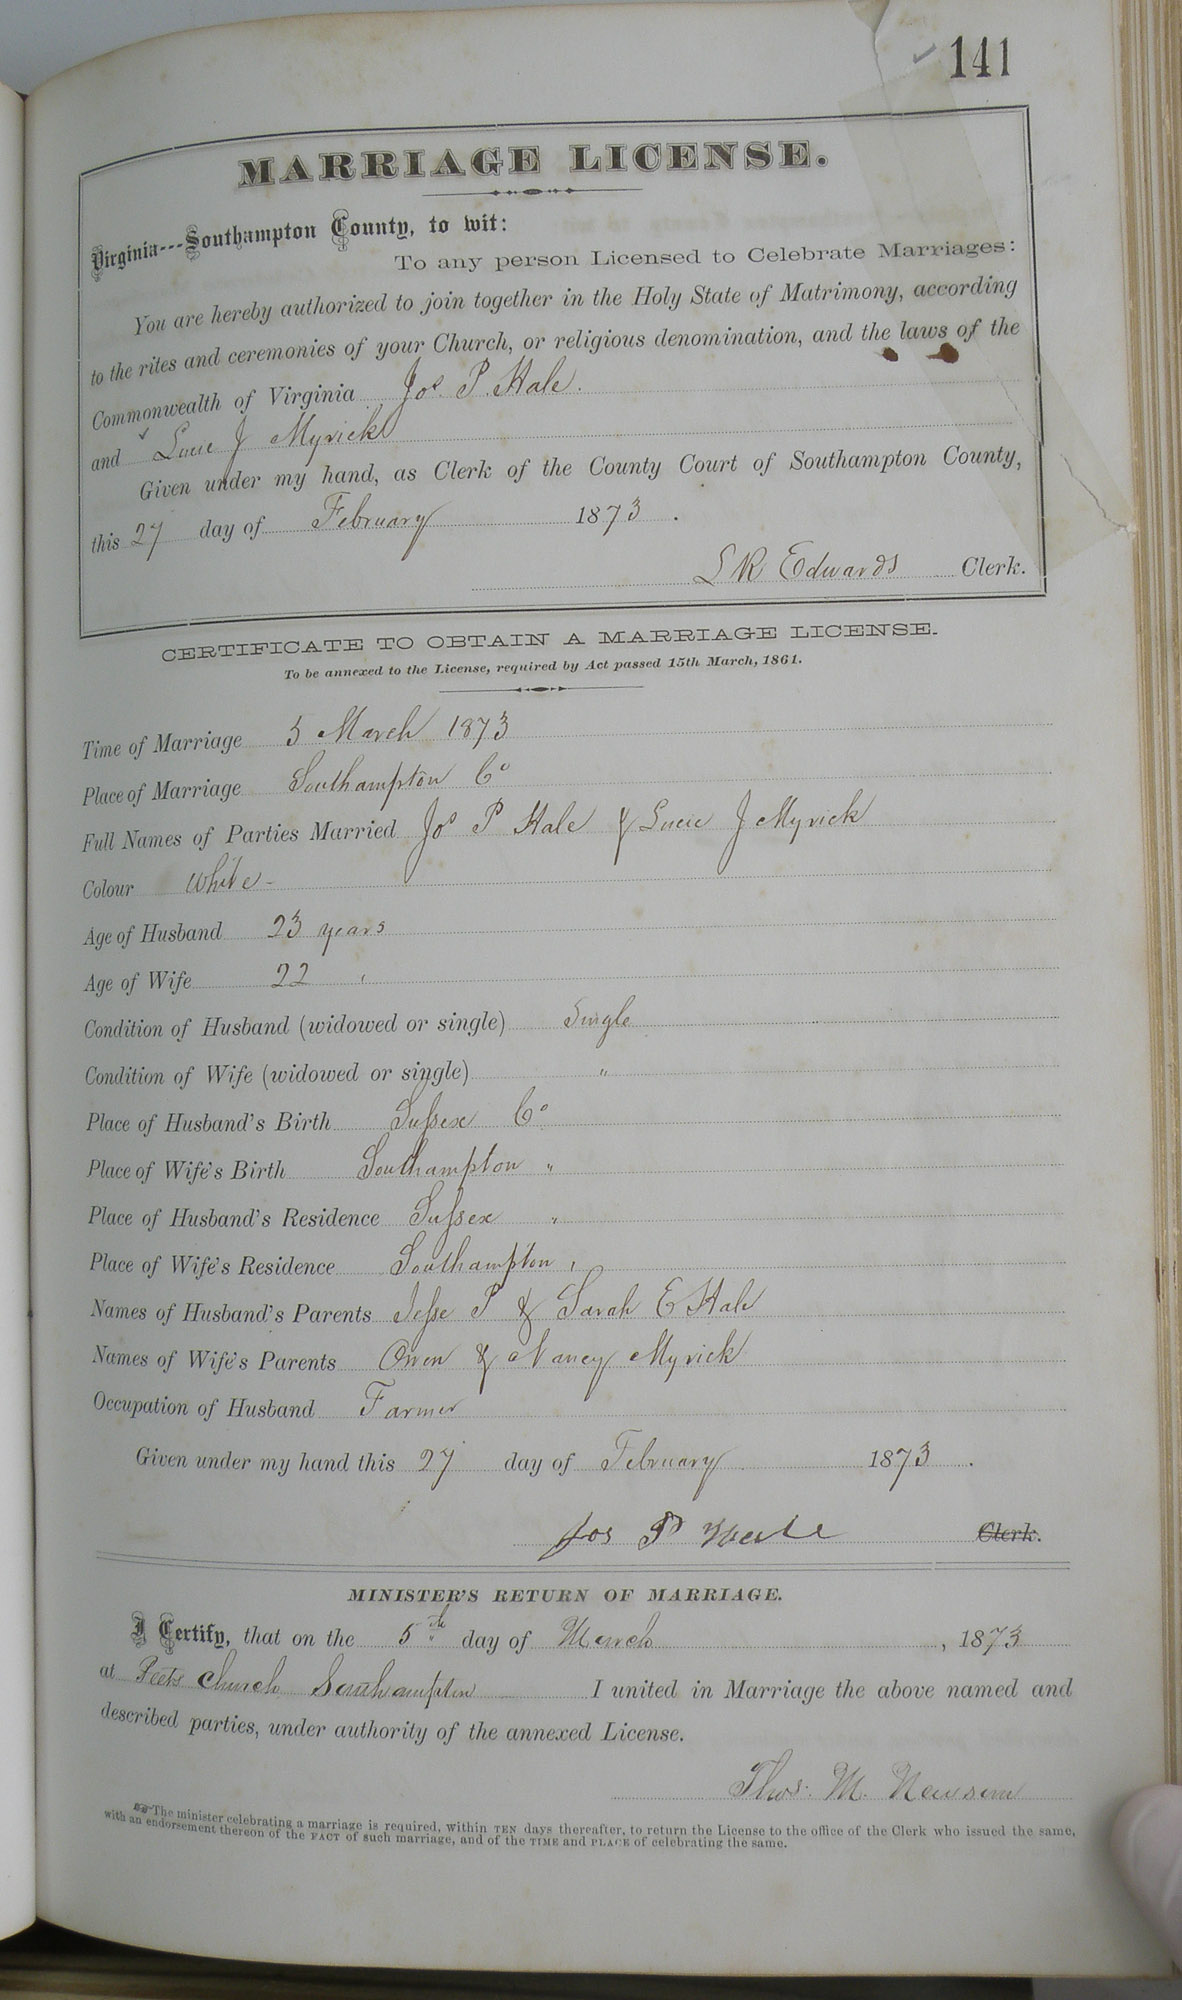 141
MARRIAGE LICENSE.
Virginia---Southampton County, to wit:
To any person Licensed to Celebrate Marriages:
You are hereby authorized to join together in the Holy State of Matrimony, according
to the rites and ceremonies of your Church, or religious denomination, and the laws of the
Commonwealth of Virginia Jos. P. Hale.
and Lucie J Myrick
Given under my hand, as Clerk of the County Court of Southampton County,
this 27 day of February 1873.
L R Edwards Clerk.
CERTIFICATE TO OBTAIN A MARRIAGE LICENSE.
To be annexed to the License, required by Act passed 15th March, 1861.
Time of Marriage 5 March 1873
Place of Marriage Southampton Co
Full Names of Parties Married Jos P Hale & Lucie J Myrick
Colour White -
Age of Husband 23 years
Age of Wife 22 "
Condition of Husband (widowed or single) Single
Condition of Wife (widowed or single) "
Place of Husband's Birth Sussex Co
Place of Wife's Birth Southampton "
Place of Husband's Residence Sussex "
Place of Wife's Residence Southampton "
Names of Husband's Parents Jesse P & Sarah E Hale
Names of Wife's Parents Owen & Nancy Myrick
Occupation of Husband Farmer
Given under my hand this 27 day of February 1873.
Jos P Hale Clerk.
MINISTER'S RETURN OF MARRIAGE.
I Certify, that on the 5th day of March, 1873
at church Southampton I united in Marriage the above named and
described parties, under authority of the annexed License.
Thos. M. Newsom
The minister celebrating a marriage is required, within TEN days thereafter, to return the License to the office of the Clerk who issued the same,
with an endorsement thereon of the FACT of such marriage, and of the TIME and PLACE of celebrating the same.